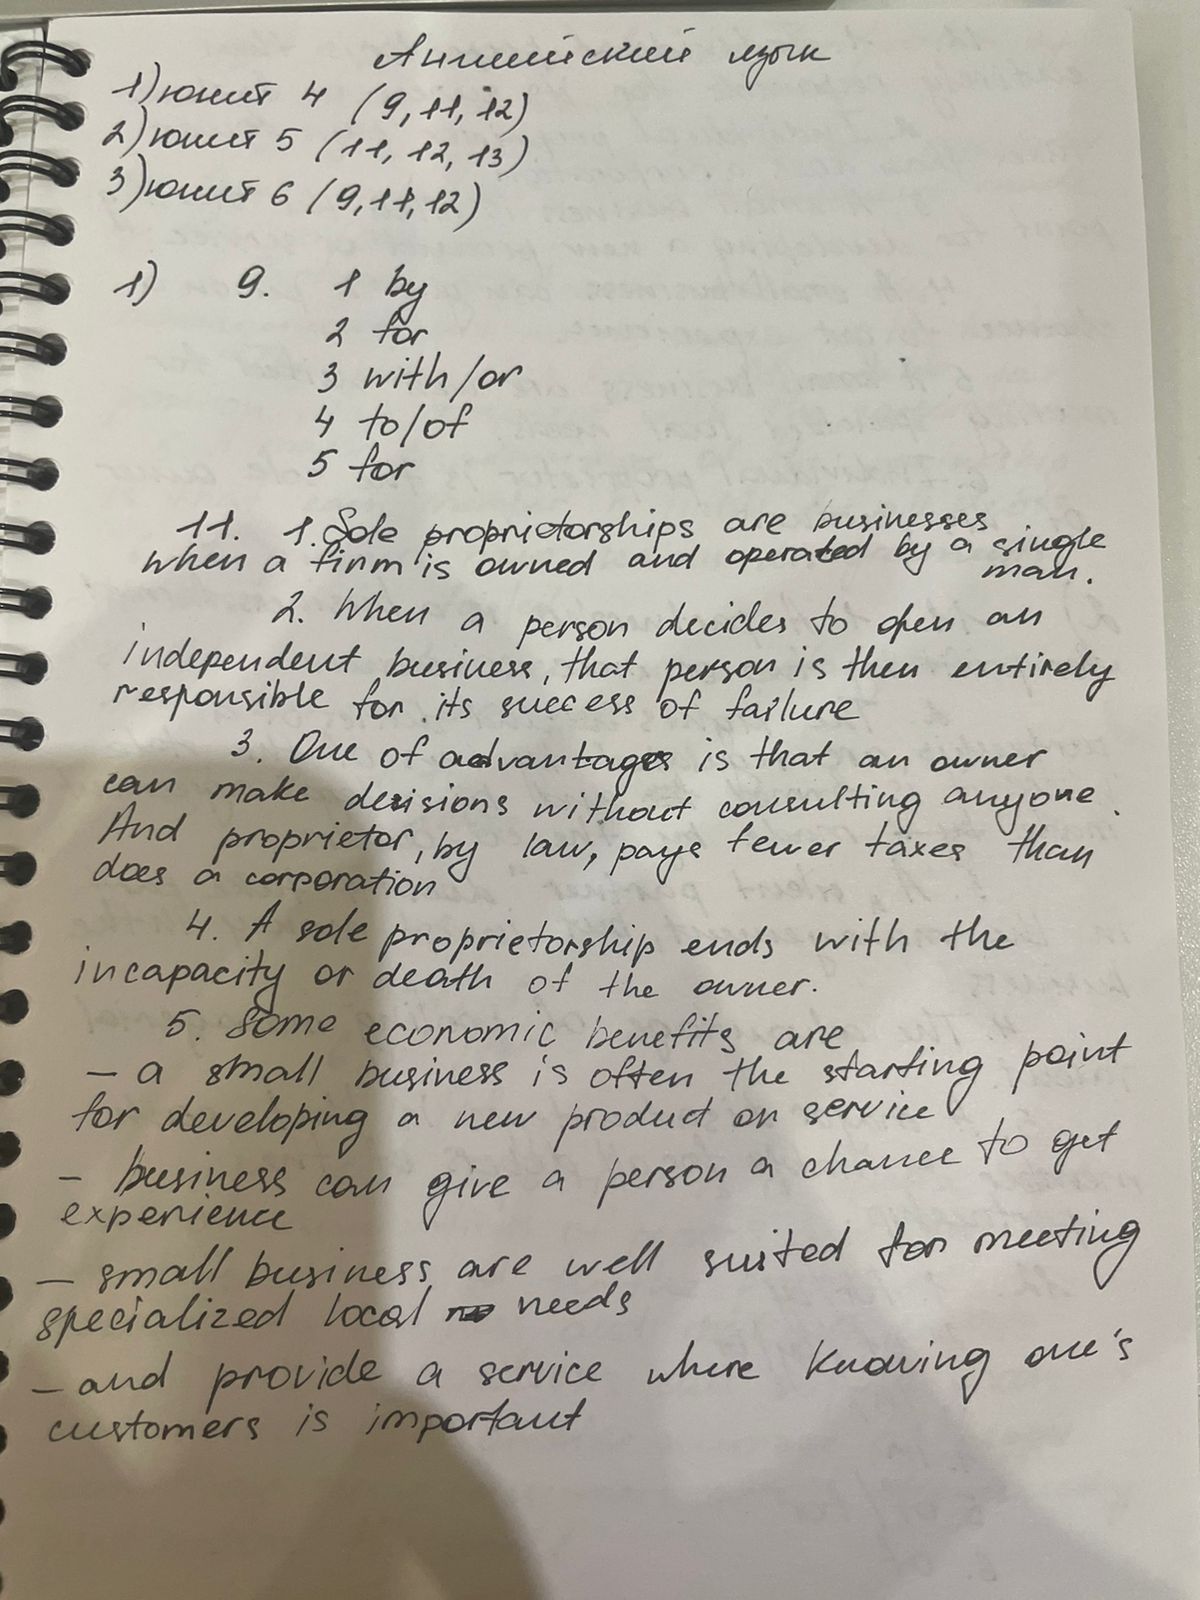 Английский язык
1) юнит 4 (9, 11, 12)
2) юнит 5 (11, 12, 13)
3) юнит 6 (9, 11, 12)
1) 9. 1 by
2 for
3 with/or
4 to/of
5 for
11. 1. Sole proprietorships are businesses
when a firm is owned and operated by a single
man.
2. When a person decides to open an
independent business, that person is then entirely
responsible for its success of failure
3. One of advantages is that an owner
can make decisions without consulting anyone.
And proprietor, by law, pays fewer taxes than
does a corporation
4. A sole proprietorship ends with the
incapacity or death of the owner.
5. Some economic benefits are
– a small business is often the starting point
for developing a new product or service
– business can give a person a chance to get
experience
– small business are well suited for meeting
specialized local needs
– and provide a service where knowing one's
customers is important